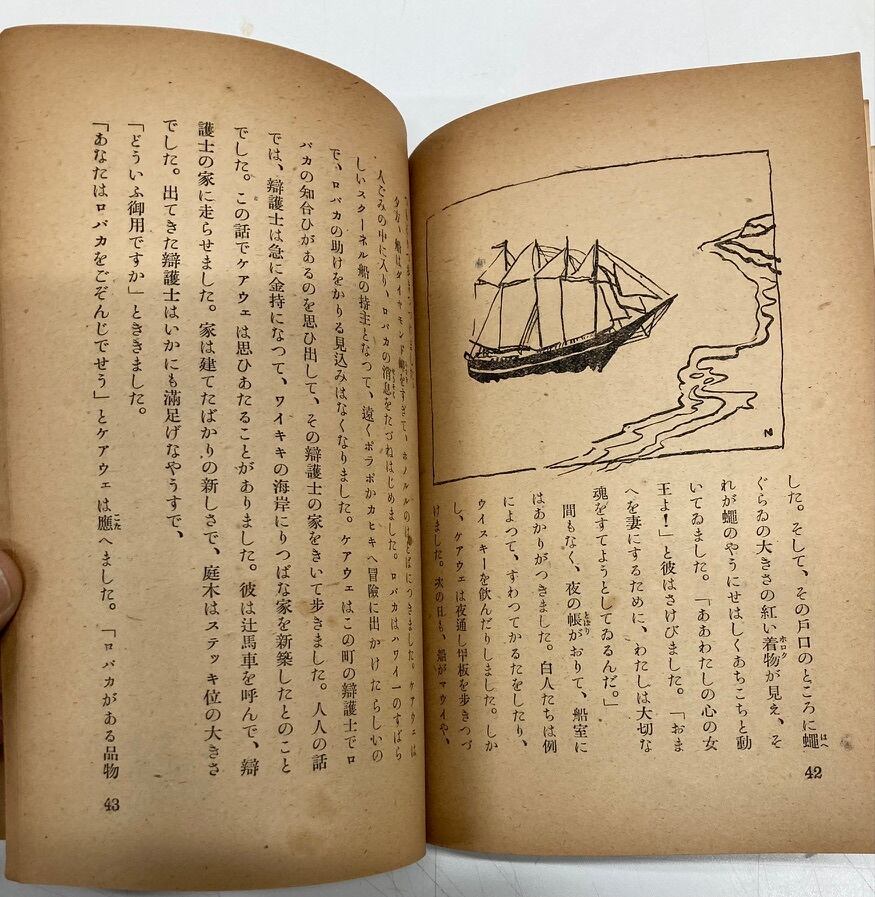 した。そして、その戸口のところに蠅
ぐらゐの大きさの紅い着物が見え、そ
れが蠅のやうにせはしくあちこちと動
いてゐました。「ああわたしの心の女
王よ！」と彼はさけびました。「おま
へを妻にするために、わたしは大切な
魂をすてようとしてゐるんだ。」
間もなく、夜の帳がおりて、船室に
はあかりがつきました。白人たちは例
によつて、すわつてかるたをしたり、
ウイスキーを飲んだりしました。しか
し、ケアウェは夜通し甲板を歩きつづ
けました。次の日も、船がマウイや、
42
N
夕方、船はダイヤモンド岬をすぎて、ホノルルのはとばにつきました。ケアウェは
人ごみの中に入り、ロパカの消息をたづねはじめました。ロパカはハワイ一のすばら
しいスクーネル船の持主となつて、遠くポラポかカヒキへ冒險に出かけたらしいの
で、ロパカの助けをかりる見込みはなくなりました。ケアウェはこの町の辯護士でロ
パカの知合ひがあるのを思ひ出して、その辯護士の家をきいて歩きました。人人の話
では、辯護士は急に金持になつて、ワイキキの海岸にりつぱな家を新築したとのこと
でした。この話でケアウェは思ひあたることがありました。彼は辻馬車を呼んで、辯
護士の家に走らせました。家は建てたばかりの新しさで、庭木はステッキ位の大きさ
でした。出てきた辯護士はいかにも滿足げなやうすで、
「どういふ御用ですか」とききました。
「あなたはロパカをごぞんじでせう」とケアウェは應へました。「ロパカがある品物
43